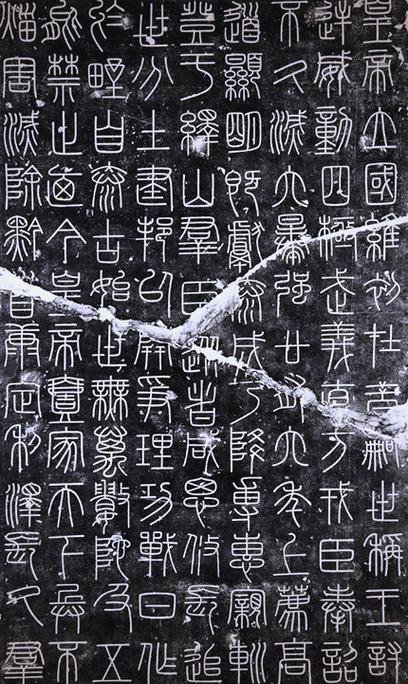 皇帝立國維初在昔嗣世稱王討
逆威動四極武義直方戎臣奉詔
不久滅六暴強廿有六年上薦高
道顯明既獻泰成乃降專惠親巡
登于繹山群臣從者咸思攸長追
世分土建邦以開爭理功戰日作
於野自泰古始世無萬數陀及五
能禁止迺今皇帝壹家天下兵不
災害滅除黔首康定利澤長久群